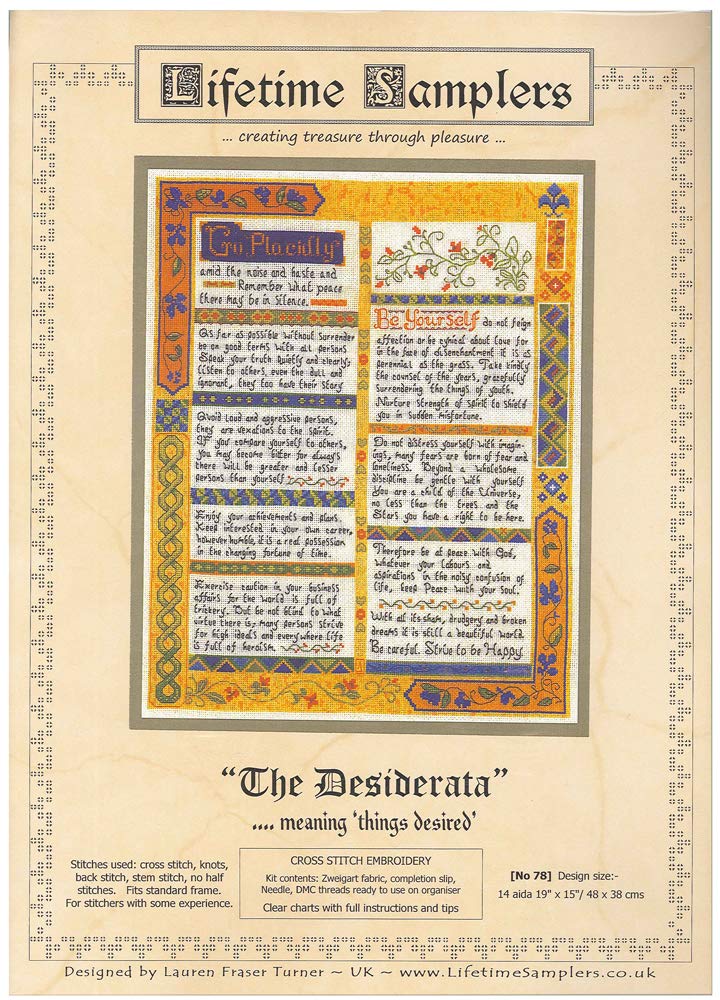 Lifetime Samplers
... creating treasure through pleasure ...
Go Placidly
amid the noise and haste and
Remember what peace
there may be in silence.
As far as possible without surrender
be on good terms with all persons
Speak your truth quietly and clearly,
listen to others, even the dull and
ignorant, they too have their story
Avoid loud and aggressive persons,
they are vexations to the spirit.
If you compare yourself to others,
you may become bitter for always
there will be greater and lesser
persons than yourself.
Enjoy your achievements and plans.
Keep interested in your own career,
however humble, it is a real possession
in the changing fortune of time.
Exercise caution in your business
affairs for the world is full of
trickery. But be not blind to what
virtue there is, many persons strive
for high ideals and everywhere life
is full of heroism.
Be Yourself do not feign
affection or be cynical about love for
in the face of disenchantment it is as
perennial as the grass. Take kindly
the counsel of the years, gracefully
surrendering the things of youth.
Nurture strength of spirit to shield
you in sudden misfortune.
Do not distress yourself with imagin-
ings, many fears are born of fear and
loneliness. Beyond a wholesome
discipline be gentle with yourself
You are a child of the Universe,
no less than the trees and the
Stars you have a right to be here.
Therefore be at peace with God,
whatever your labours and
aspirations in the noisy confusion of
life, keep Peace with your Soul.
With all its sham, drudgery and broken
dreams it is still a beautiful world.
Be careful. Strive to be Happy
"The Desiderata"
.... meaning 'things desired'
Stitches used: cross stitch, knots,
back stitch, stem stitch, no half
stitches. Fits standard frame.
For stitchers with some experience.
CROSS STITCH EMBROIDERY
Kit contents: Zweigart fabric, completion slip,
Needle, DMC threads ready to use on organiser
Clear charts with full instructions and tips
[No 78] Design size:-
14 aida 19" x 15"/ 48 x 38 cms
Designed by Lauren Fraser Turner ~ UK ~ www.LifetimeSamplers.co.uk